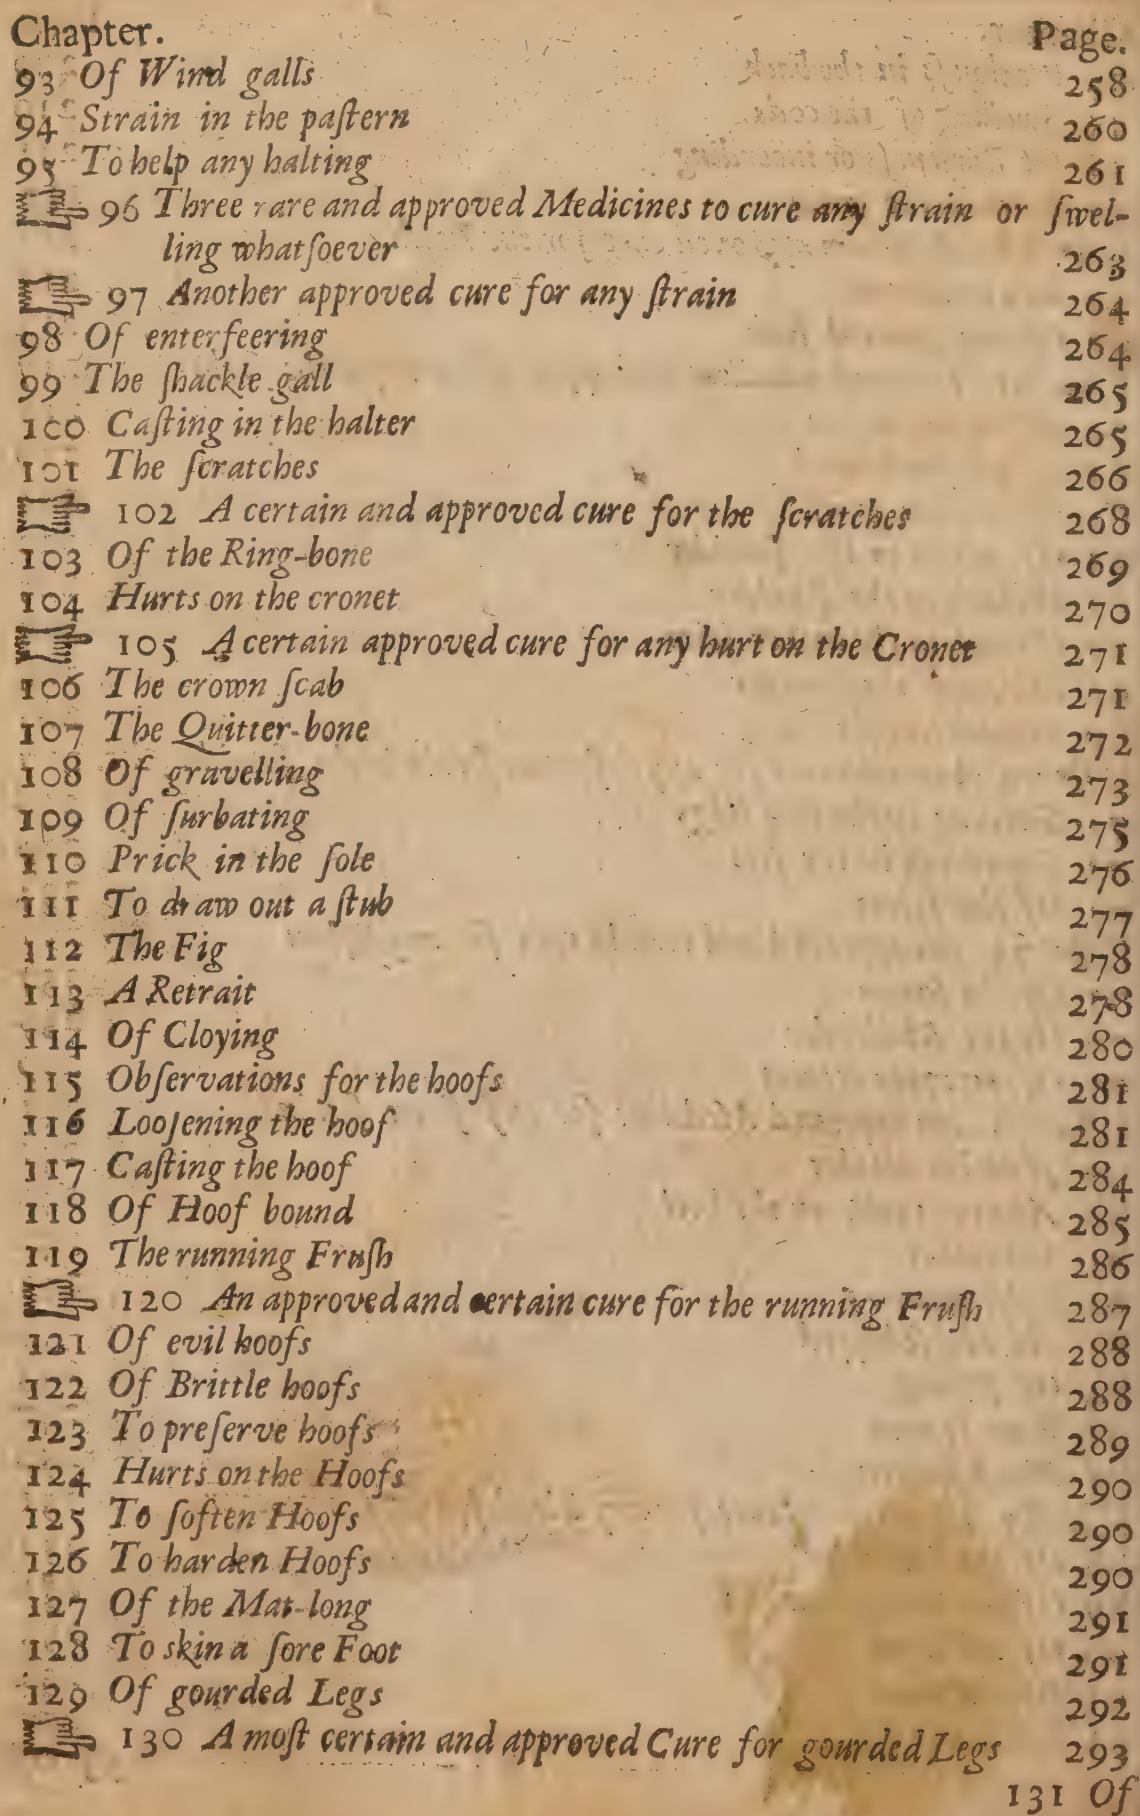 Chapter. Page.
93 Of Wind galls 258
94 Strain in the paſtern 260
95 To help any halting 261
☞ 96 Three rare and approved Medicines to cure any ſtrain or ſwel-
ling whatſoever 263
☞ 97 Another approved cure for any ſtrain 264
98 Of enterfeering 264
99 The ſhackle gall 265
100 Caſting in the halter 265
101 The ſcratches 266
☞ 102 A certain and approved cure for the ſcratches 268
103 Of the Ring-bone 269
104 Hurts on the cronet 270
☞ 105 A certain approved cure for any hurt on the Cronet 271
106 The crown ſcab 271
107 The Quitter-bone 272
108 Of gravelling 273
109 Of ſurbating 275
110 Prick in the ſole 276
111 To draw out a ſtub 277
112 The Fig 278
113 A Retrait 278
114 Of Cloying 280
115 Obſervations for the hoofs 281
116 Looſening the hoof 281
117 Caſting the hoof 284
118 Of Hoof bound 285
119 The running Fruſh 286
☞ 120 An approved and certain cure for the running Fruſh 287
121 Of evil hoofs 288
122 Of Brittle hoofs 288
123 To preſerve hoofs 289
124 Hurts on the Hoofs 290
125 To ſoften Hoofs 290
126 To harden Hoofs 290
127 Of the Mat-long 291
128 To skin a ſore Foot 291
129 Of gourded Legs 292
☞ 130 A moſt certain and approved Cure for gourded Legs 293
131 Of